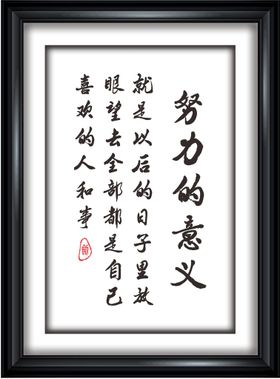 努力的意义
就是以后的日子里放
眼望去全部都是自己
喜欢的人和事